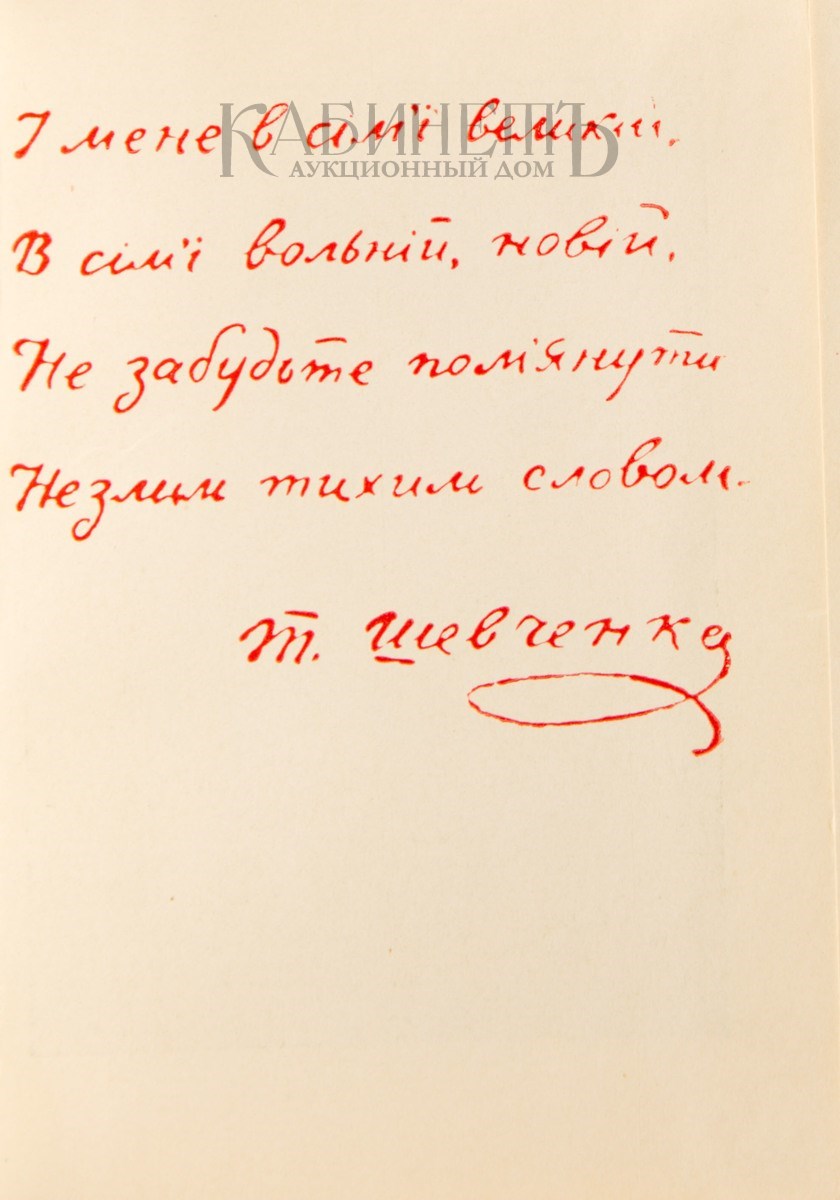 І мене в сім'ї великій,
КАБИНЕТЪ
АУКЦИОННЫЙ ДОМ
В сім'ї вольній, новій,
Не забудьте пом'янути
Незлим тихим словом.
Т. Шевченко